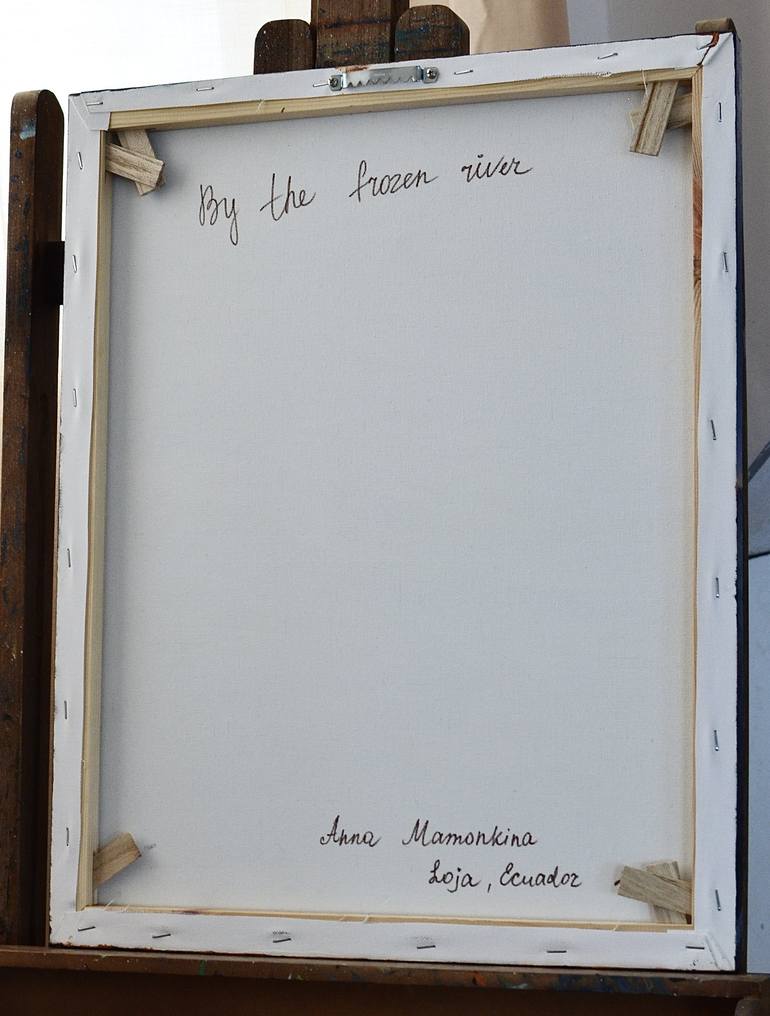 By the frozen river
Anna Mamonkina
Loja, Ecuador